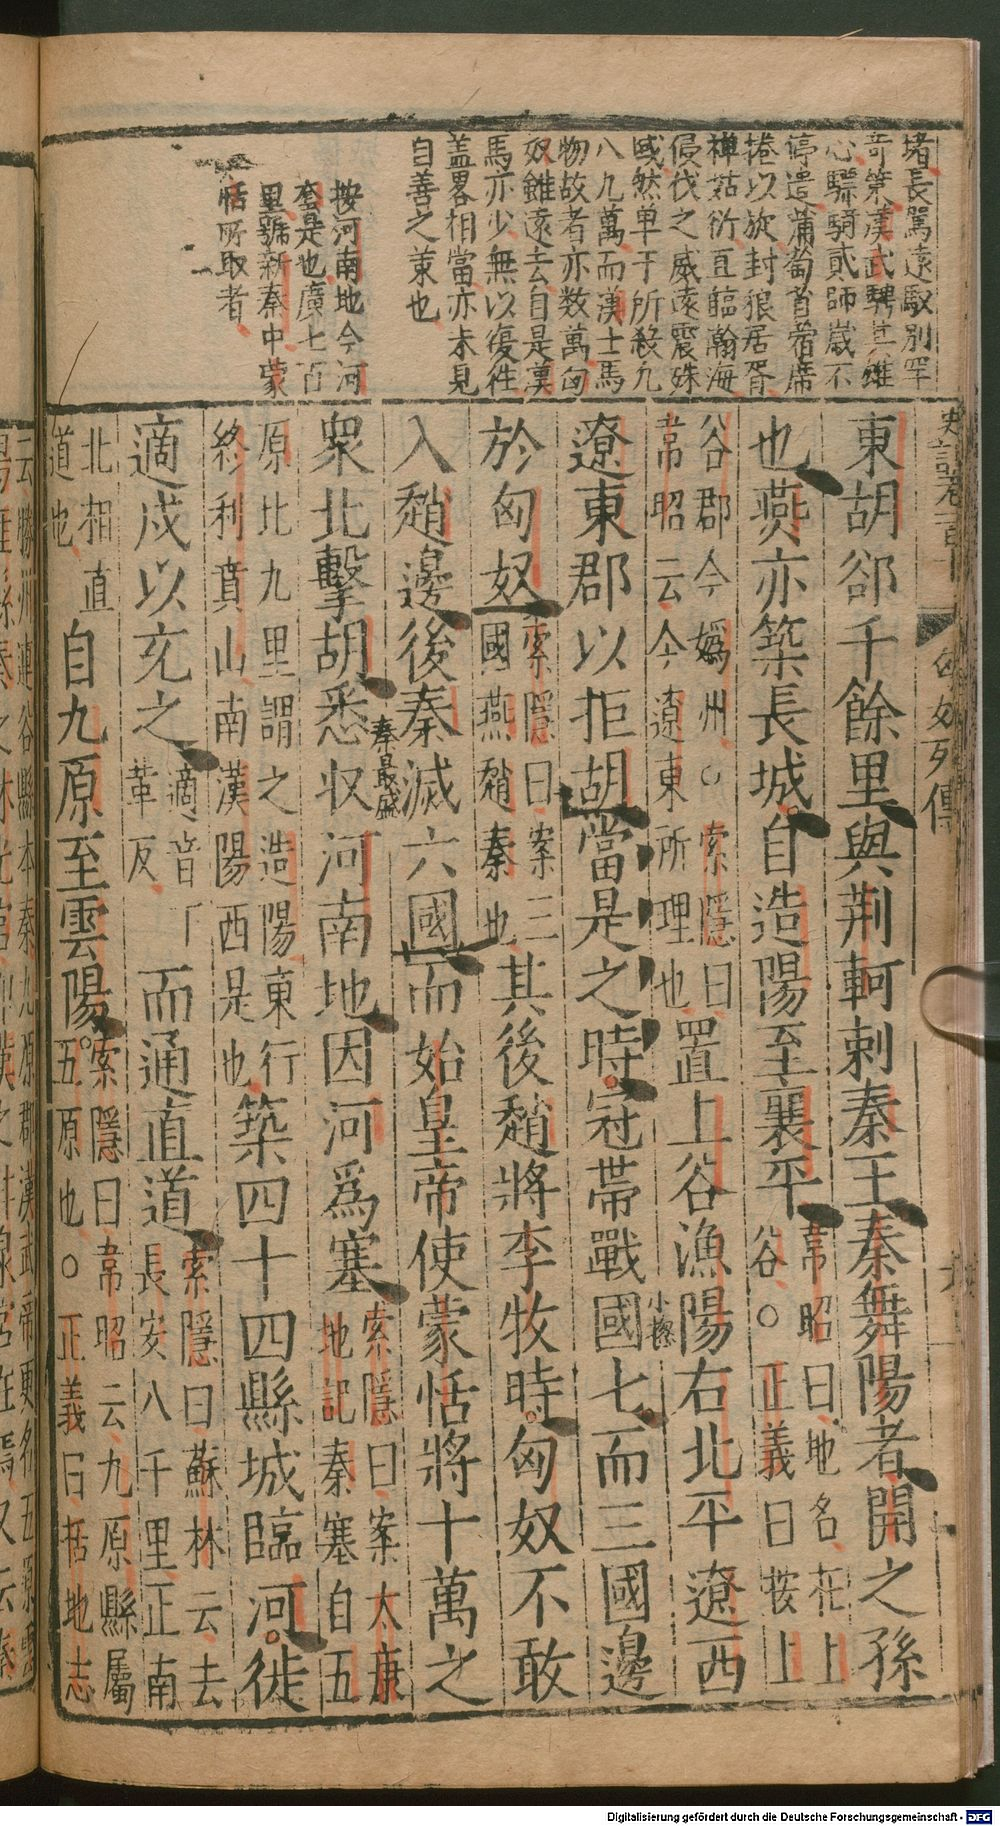 堵長駕遠馭別罕
奇策漢武騁其雄
心驪騎貳師歲不
停遣蒲萄首蓿席
捲以旋封狼居胥
禅姑衍直臨瀚海
侵伐之威遠震殊
域然单于所殺九
八九萬而漢士馬
物故者亦数萬匈
奴雖遠去自是漢
馬亦少無以復徃
蓋畧相當亦未見
自善之䇿也
按河南地今河
套是也廣七百
里號新秦中蒙
恬所取者
史記卷一百十
匈奴列傳
東胡卻千餘里與荆軻刺秦王秦舞陽者開之孫
也燕亦築長城自造陽至襄平韋昭曰地名在上
谷○正義曰按上
谷郡今嬀州○索隱曰
韋昭云今遼東所理也置上谷漁陽右北平遼西
遼東郡以拒胡當是之時冠帶戰國七而三國邊
小標
於匈奴索隱曰案三
國燕趙秦也其後趙將李牧時匈奴不敢
入趙邊後秦滅六國而始皇帝使蒙恬將十萬之
秦最盛
衆北擊胡悉収河南地因河爲塞索隱曰案太康
地記秦塞自五
原北九里謂之造陽東行
終利賁山南漢陽西是也築四十四縣城臨河徙
適戍以充之適音丁
革反而通直道索隱曰蘇林云去
長安八千里正南
北相直
道也自九原至雲陽索隱曰韋昭云九原縣屬
五原也○正義曰括地志
云勝州連谷縣本秦九原郡漢武帝更名五原
Digitalisierung gefördert durch die Deutsche Forschungsgemeinschaft - DFG